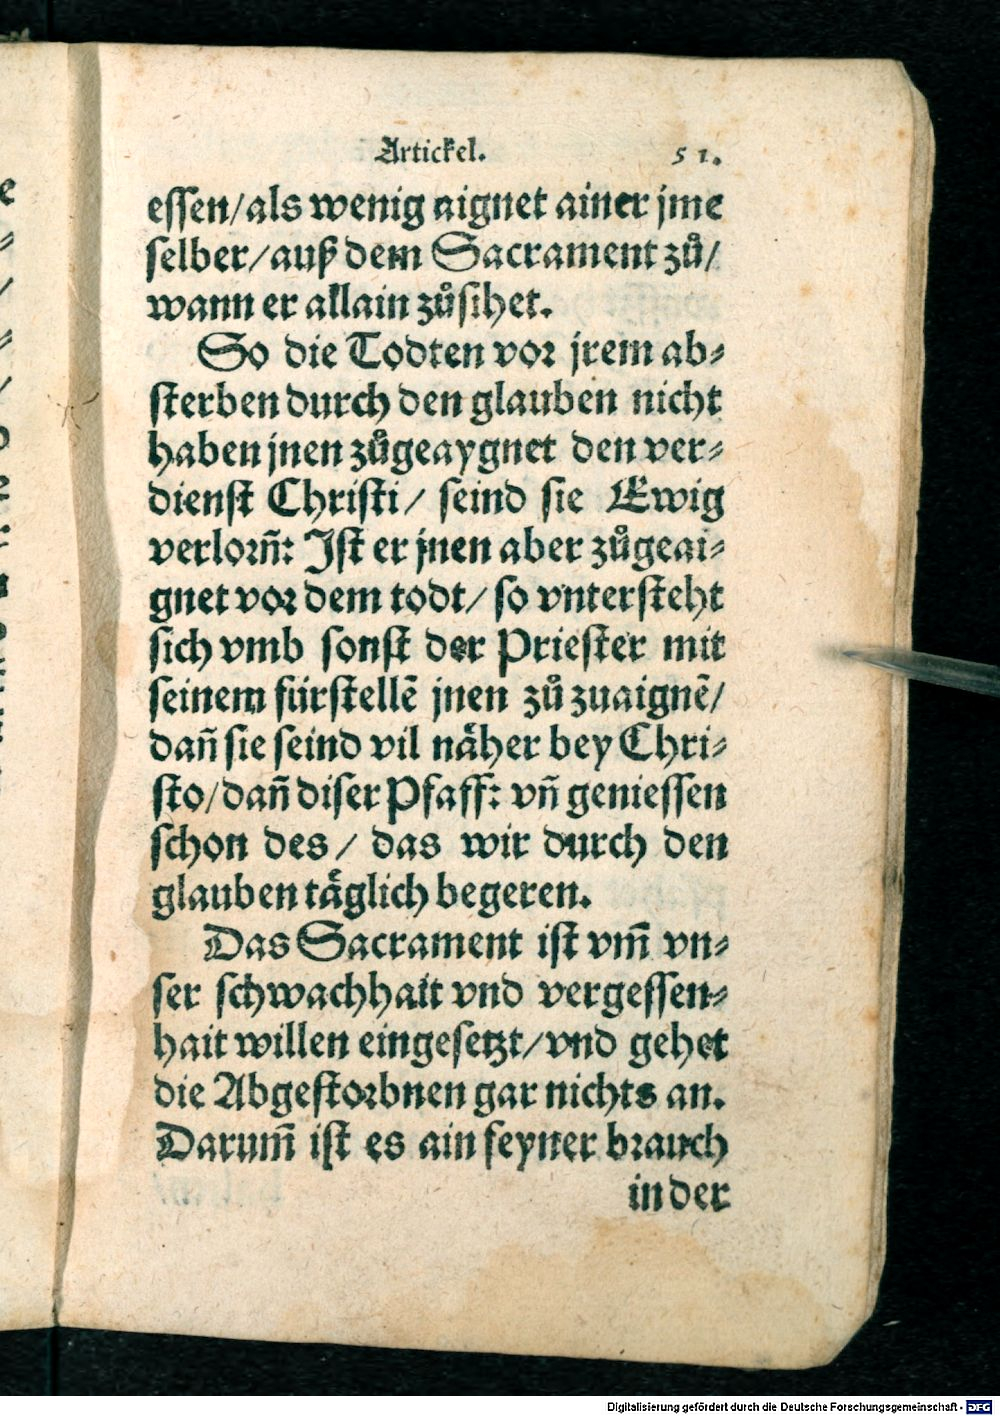 Artickel. 51.
essen/als wenig aignet ainer jme
selber/auß dem Sacrament zů/
wann er allain zůsihet.
So die Todten vor jrem ab⸗
sterben durch den glauben nicht
haben jnen zůgeaygnet den ver⸗
dienst Christi/ seind sie Ewig
verlorñ: Jst er jnen aber zůgeai⸗
gnet vor dem todt/ so vntersteht
sich vmb sonst der Priester mit
seinem fürstellē jnen zů zuaignē/
dañ sie seind vil näher bey Chri⸗
sto/dañ diser Pfaff: vñ geniessen
schon des/ das wir durch den
glauben täglich begeren.
Das Sacrament ist vm̃ vn⸗
ser schwachhait vnd vergessen⸗
hait willen eingesetzt/vnd gehet
die Abgestorbnen gar nichts an.
Darum̃ ist es ain feyner brauch
in der
Digitalisierung gefördert durch die Deutsche Forschungsgemeinschaft - DFG